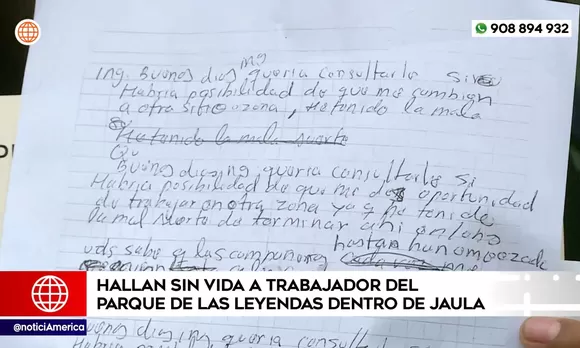 908 894 932
Ing. Buenos dias ing queria consultarle si
Habria posibilidad de que me cambien
a otra sitio o zona, He tenido la mala
He tenido la mala suerte
Qu
Buenos dias ing queria consultarle si
Habria posibilidad de que me de oportunidad
de trabajar en otra zona ya q he tenido
la mal suerte de terminar ahi en lobo
uds sabe q las compañeras hastan han amenazado
HALLAN SIN VIDA A TRABAJADOR DEL
PARQUE DE LAS LEYENDAS DENTRO DE JAULA
@noticiAmerica
Buenos dias ing, queria consultarle si
Habria